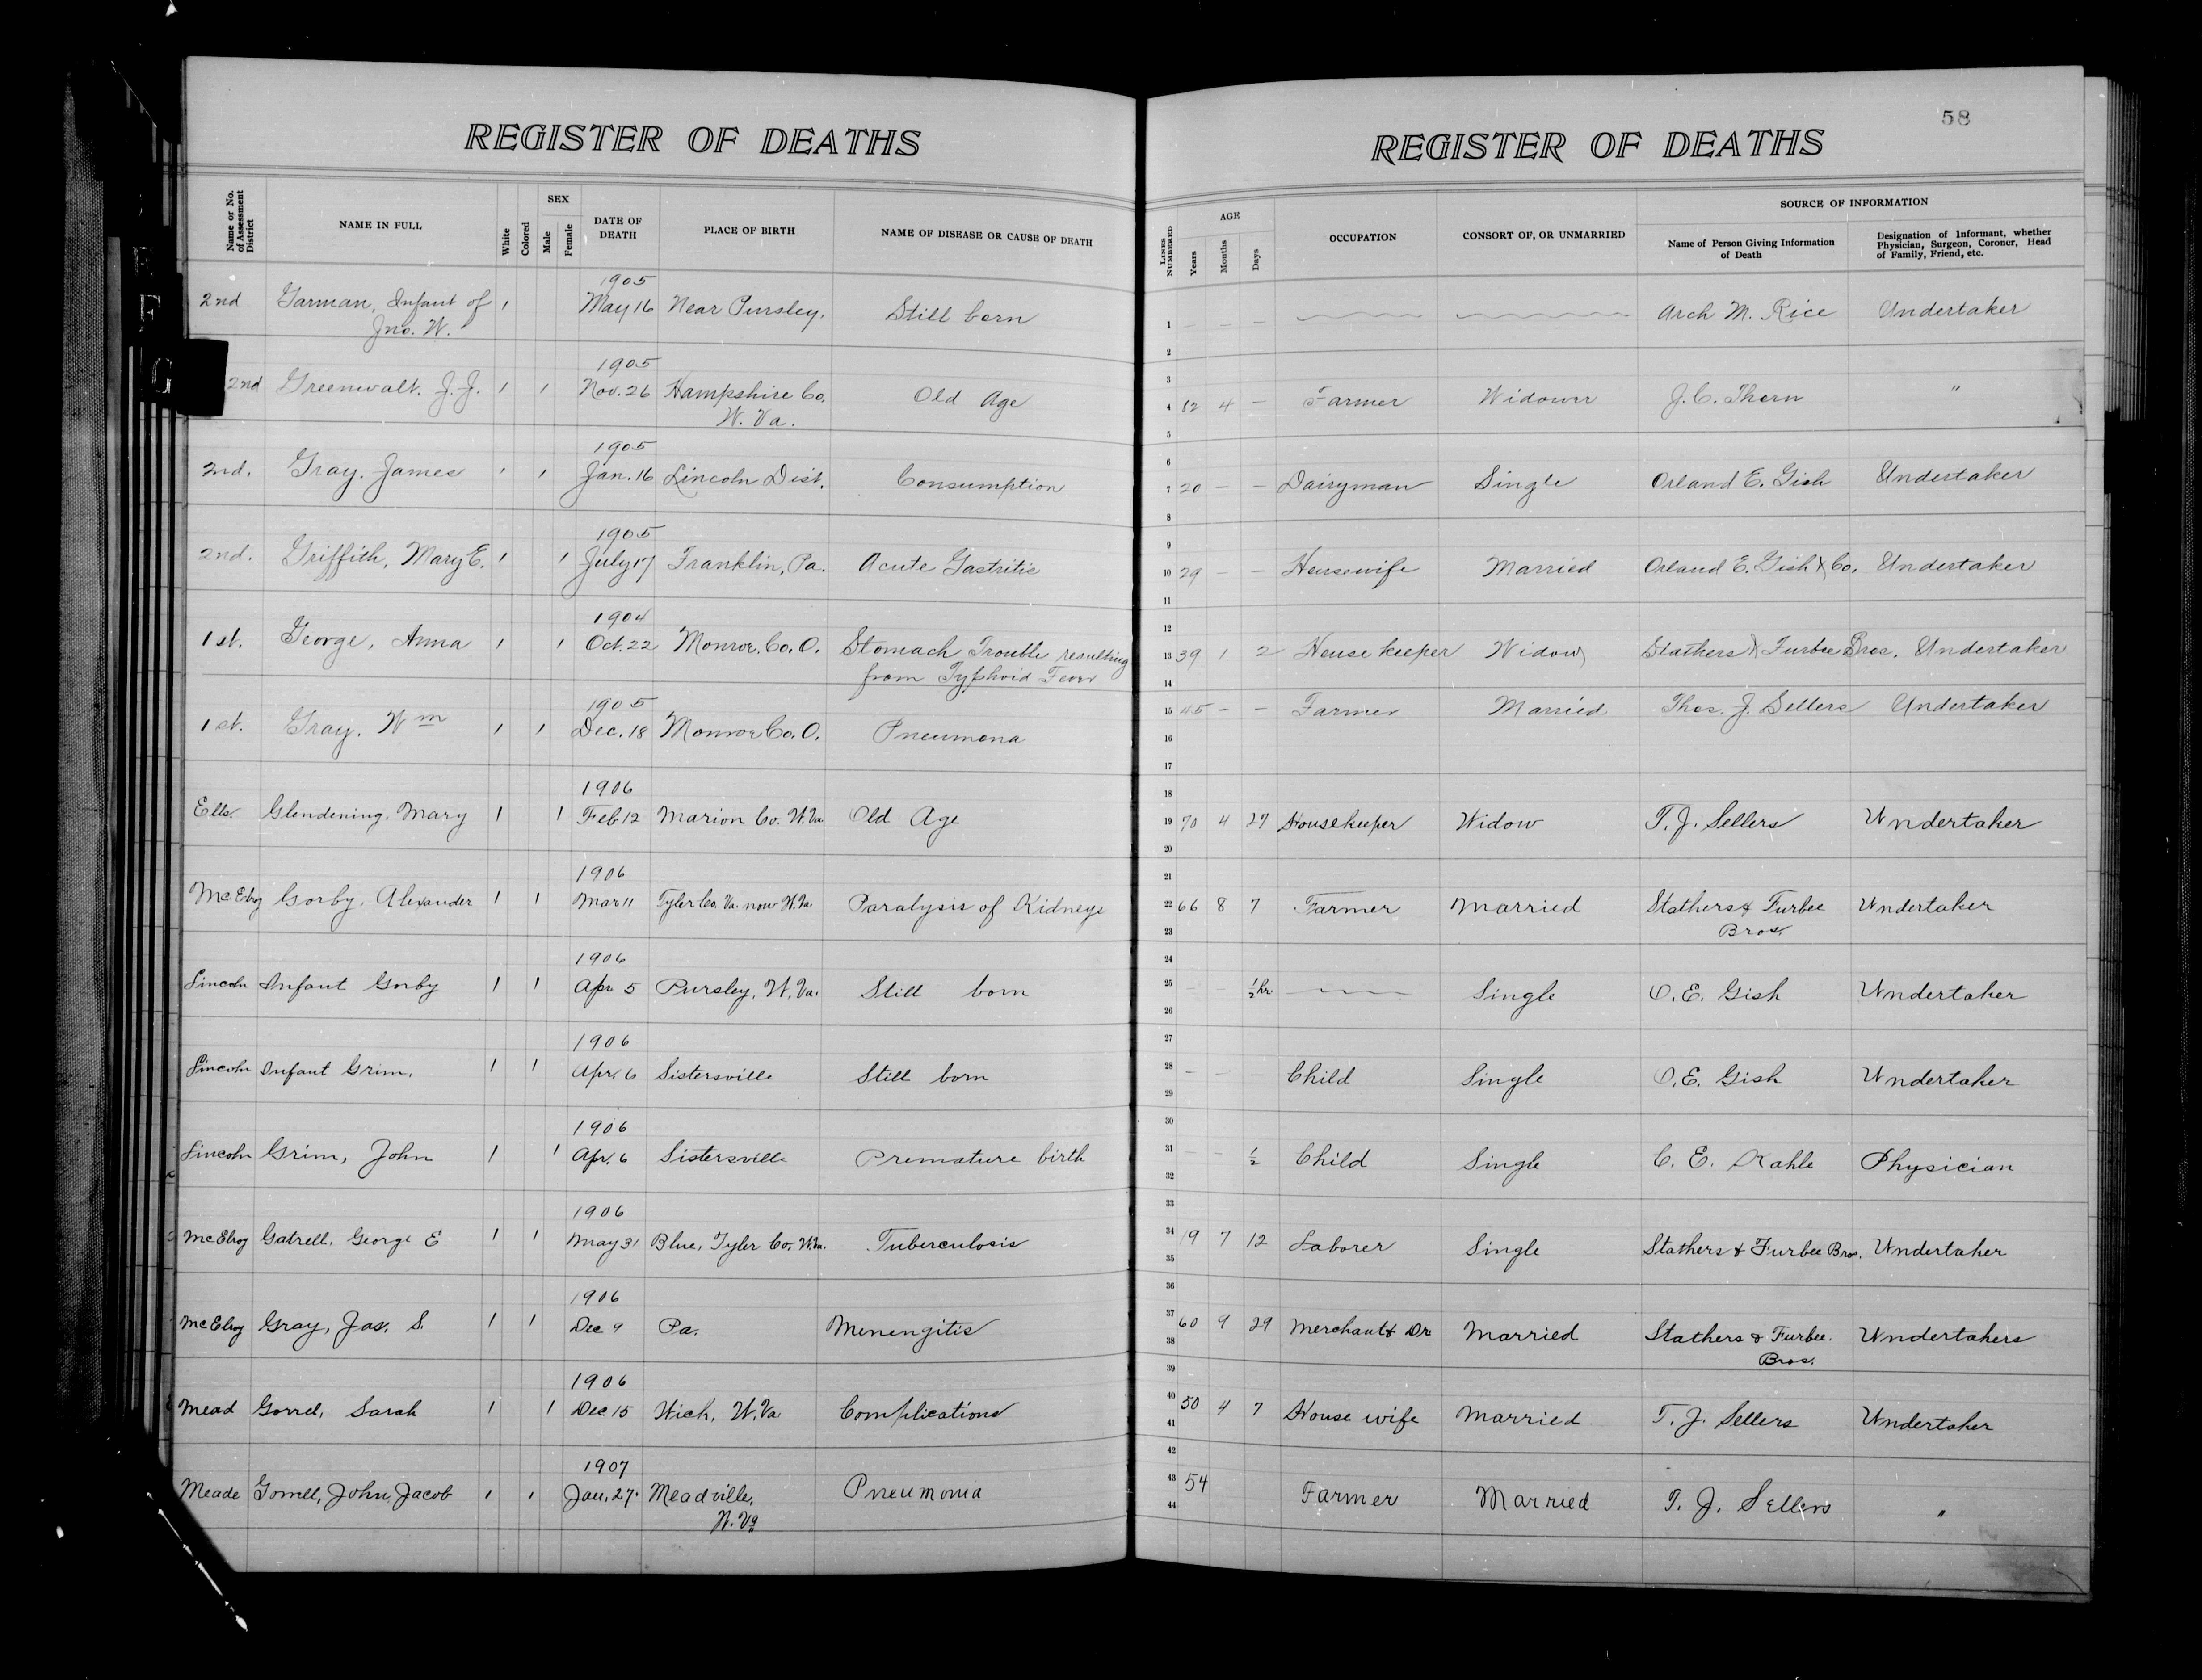 58
REGISTER OF DEATHS
REGISTER OF DEATHS
Name or No. of Assessment District
NAME IN FULL
White
Colored
SEX
Male
Female
DATE OF DEATH
PLACE OF BIRTH
NAME OF DISEASE OR CAUSE OF DEATH
LINES NUMBERED
AGE
Years
Months
Days
OCCUPATION
CONSORT OF, OR UNMARRIED
SOURCE OF INFORMATION
Name of Person Giving Information of Death
Designation of Informant, whether Physician, Surgeon, Coroner, Head of Family, Friend, etc.
1905
2nd Garman, Infant of 1 May 16 Near Pursley, Still born 1 — — — Arch M. Rice Undertaker
Jno. W.
2
1905
3
2nd Greenwalt. J. J. 1 1 Nov. 26 Hampshire Co. Old Age 4 82 4 — Farmer Widower J. C. Thorn "
W. Va.
5
1905
6
2nd. Gray. James 1 1 Jan. 16 Lincoln Dist. Consumption 7 20 — — Dairyman Single Orland E. Gish Undertaker
8
1905
9
2nd. Griffith, Mary E. 1 1 July 17 Franklin, Pa. Acute Gastritis 10 29 — — Housewife Married Orland E. Gish & Co. Undertaker
11
1904
12
1st. George, Anna 1 1 Oct. 22 Monroe. Co. O. Stomach Trouble resulting 13 39 1 2 Housekeeper Widow Stathers & Furbee Bros. Undertaker
from Typhoid Fever
14
1905
1st. Gray. Wm 1 1 Dec. 18 Monroe Co. O. Pneumona 15 45 — — Farmer Married Thos. J. Sellers Undertaker
16
17
1906
18
Ells. Glendening. Mary 1 1 Feb 12 Marion Co. W. Va Old Age 19 70 4 27 Housekeeper Widow T. J. Sellers Undertaker
20
1906
21
McElroy Gorby, Alexander 1 1 Mar 11 Tyler Co. Va. now W. Va. Paralysis of Kidneys 22 66 8 7 Farmer Married Stathers & Furbee Undertaker
Bros.
23
1906
24
Lincoln Infant Gorby 1 1 Apr 5 Pursley, W. Va. Still born 25 — — ½ hr. Single O. E. Gish Undertaker
26
1906
27
Lincoln Infant Grim, 1 1 Apr. 6 Sistersville Still born 28 — — — Child Single O. E. Gish Undertaker
29
1906
30
Lincoln Grim, John 1 1 Apr. 6 Sistersville Premature birth 31 — — ½ Child Single C. E. Kahle Physician
32
1906
33
McElroy Gatrell, George E 1 1 May 31 Blue, Tyler Co, W. Va. Tuberculosis 34 19 7 12 Laborer Single Stathers & Furbee Bros. Undertaker
35
1906
36
McElroy Gray, Jas. S. 1 1 Dec 9 Pa. Menengitis 37 60 9 29 Merchant & Dr Married Stathers & Furbee. Undertakers
Bros.
38
1906
39
Mead Gorrel, Sarah 1 1 Dec 15 Wick, W. Va Complications 40 50 4 7 House wife Married T. J. Sellers Undertaker
41
1907
42
Meade Gorrell, John Jacob 1 1 Jan. 27. Meadville, Pneumonia 43 54 Farmer Married T. J. Sellers "
W. Va
44
G